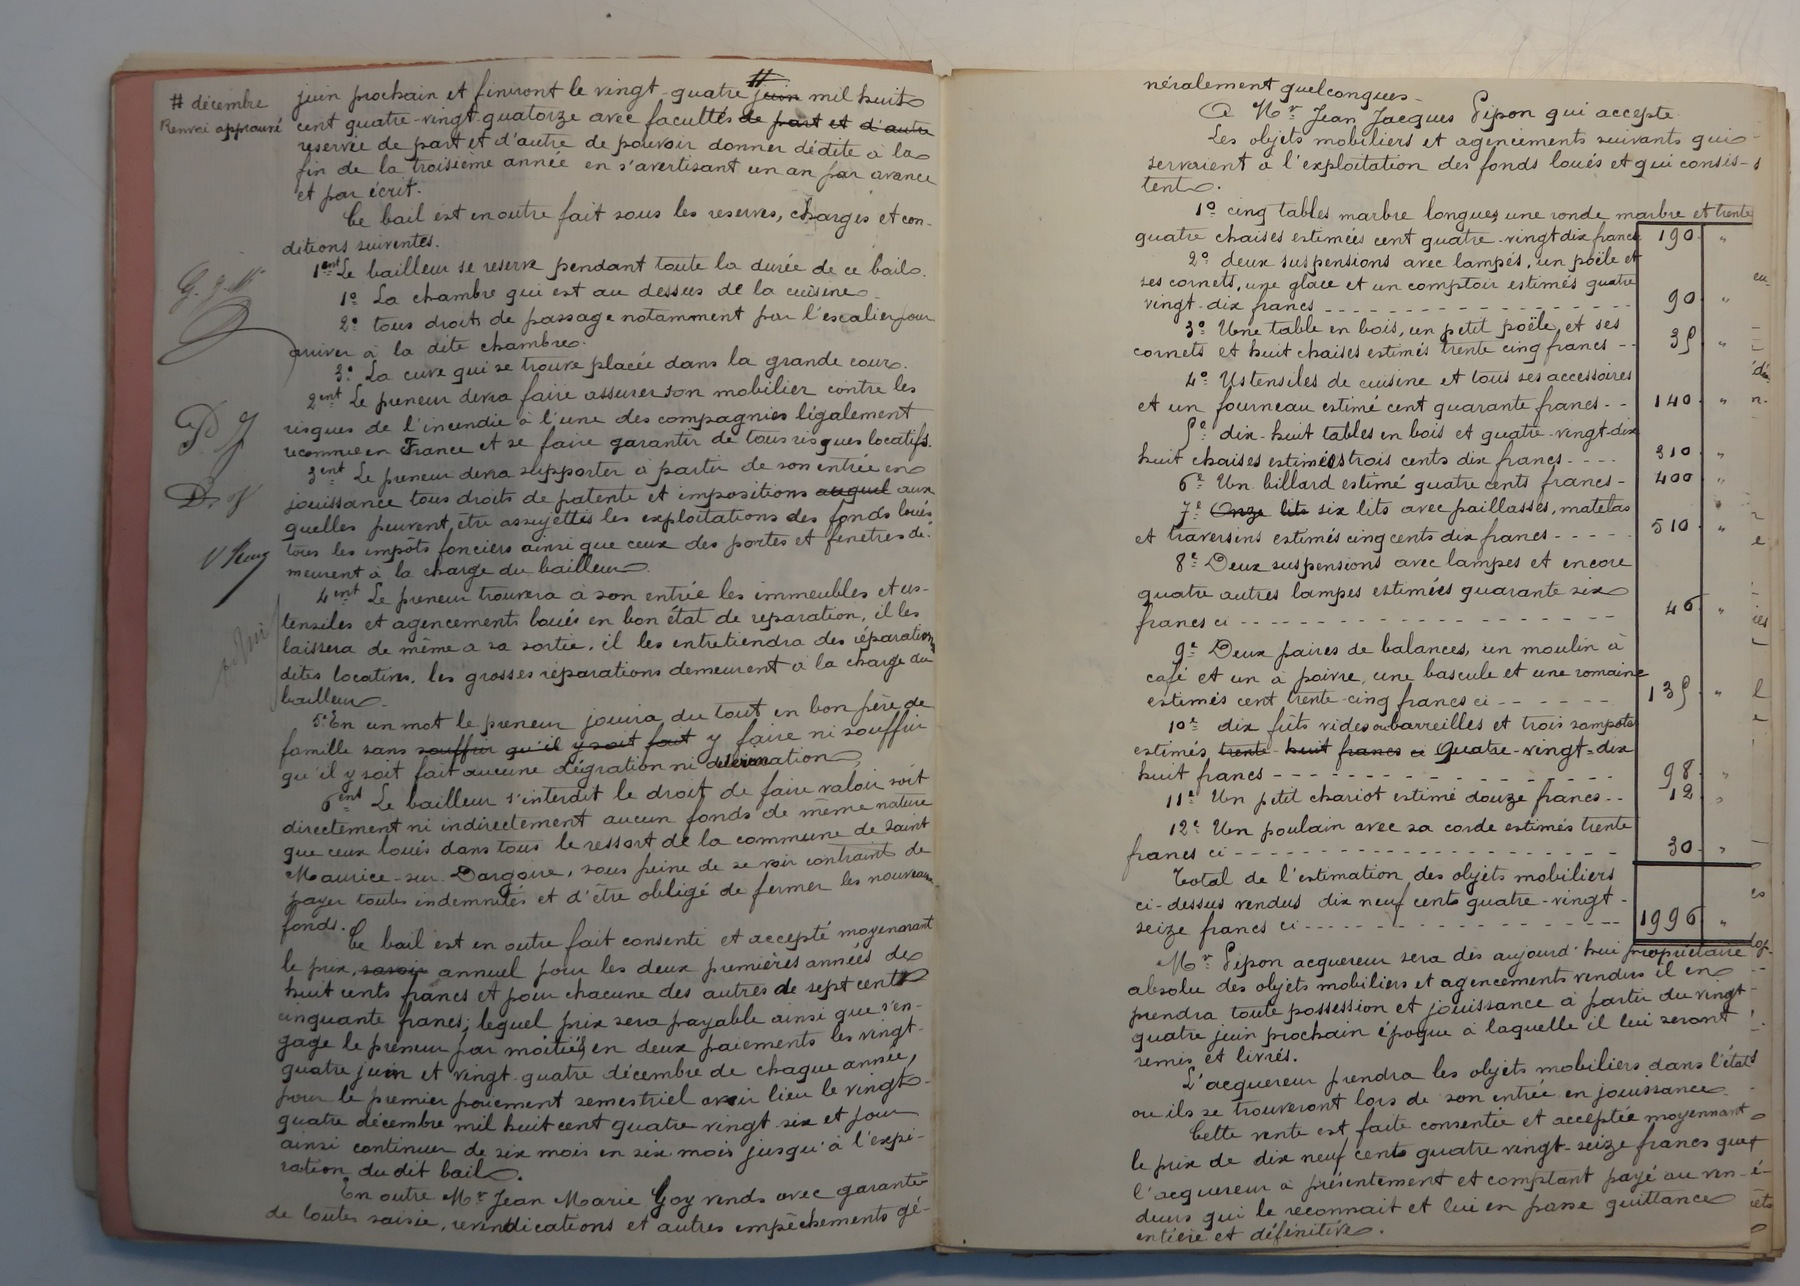 # décembre
Renvoi approuvé
G. J. M
P J
D. J
juin prochain et finiront le vingt-quatre # juin mil huit
cent quatre-vingt-quatorze avec facultés de part et d'autre
reservée de part et d'autre de pouvoir donner dédite à la
fin de la troisième année en s'avertisant un an par avance
et par écrit.
Ce bail est en outre fait sous les reserves, charges et con-
ditions suivantes.
1ent Le bailleur se reserve pendant toute la durée de ce bail.
1º La chambre qui est au dessus de la cuisine
2º tous droits de passage notamment par l'escalier pour
arriver à la dite chambre.
3º La cuve qui se trouve placée dans la grande cour.
2ent Le preneur devra faire assurer son mobilier contre les
risques de l'incendie à l'une des compagnies légalement
reconnue en France et se faire garantir de tous risques locatifs.
3ent Le preneur devra supporter à partir de son entrée en
jouissance tous droits de patente et impositions auquel aux
quelles peuvent être assujettis les exploitations des fonds loués
tous les impôts fonciers ainsi que ceux des portes et fenêtres de-
meurent à la charge du bailleur.
4ent Le preneur trouvera à son entrée les immeubles et us-
tensiles et agencements loués en bon état de reparation, il les
laissera de même a sa sortie, il les entretiendra des réparations
dites locatives, les grosses réparations demeurent à la charge du
bailleur.
5º En un mot le preneur jouira du tout en bon père de
famille sans souffrir qu'il y soit fait y faire ni souffrir
qu'il y soit fait aucune dégration ni
6ent Le bailleur s'interdit le droit de faire valoir soit
directement ni indirectement aucun fonds de même nature
que ceux loués dans tous le ressort de la commune de Saint
Maurice-sur-Dargoire, sous peine de se voir contraint de
payer toutes indemnités et d'être obligé de fermer les nouveaux
fonds.
Ce bail est en outre fait consenti et accepté moyennant
le prix, savoir annuel pour les deux premières années de
huit cents francs et pour chacune des autres de sept cent
cinquante francs; lequel prix sera payable ainsi que s'en-
gage le preneur par moitiés en deux paiements les vingt-
quatre juin et vingt-quatre décembre de chaque année,
pour le premier paiement semestriel avoir lieu le vingt-
quatre décembre mil huit cent quatre vingt-six et pour
ainsi continuer de six mois en six mois jusqu'à l'expi-
ration du dit bail.
En outre Mr Jean Marie Goy vends avec garantie
de toutes saisie, revendications et autres empêchements gé-
néralement quelconques-
A Mr Jean Jacques Pipon qui accepte.
Les objets mobiliers et agencements suivants qui
servaient à l'exploitation des fonds loués et qui consis-
tent.
1º cinq tables marbre longues une ronde marbre et trente
quatre chaises estimées cent quatre-vingt dix francs 190 "
2º deux suspensions avec lampes, un poële et
ses cornets, une glace et un comptoir estimés quatre
vingt-dix francs 90 "
3º Une table en bois, un petit poële, et ses
cornets et huit chaises estimés trente cinq francs 35 "
4º Ustensiles de cuisine et tous ses accessoires
et un fourneau estimé cent quarante francs 140 "
5º dix-huit tables en bois et quatre-vingt-dix
huit chaises estimées trois cents dix francs 310 "
6º Un billard estimé quatre cents francs 400 "
7º Onze lits six lits avec paillasses, matelas
et traversins estimés cinq cents dix francs 510 "
8º Deux suspensions avec lampes et encore
quatre autres lampes estimées quarante six
francs ci 46 "
9º Deux paires de balances, un moulin à
café et un à poivre, une bascule et une romaine
estimés cent trente-cinq francs ci 135 "
10º dix futs vides ou barreilles et trois sampots
estimés trente-huit francs ci Quatre-vingt-dix
huit francs 98 "
11º Un petit chariot estimé douze francs 12 "
12º Un poulain avec sa corde estimés trente
francs ci 30 "
Total de l'estimation des objets mobiliers
ci-dessus vendus dix neuf cents quatre-vingt-
seize francs ci 1996 "
Mr Pipon acquereur sera dès aujourd'hui propriétaire
absolu des objets mobiliers et agencements vendus il en
prendra toute possession et jouissance à partir du vingt-
quatre juin prochain époque à laquelle il lui seront
remis et livrés.
L'acquereur prendra les objets mobiliers dans l'état
ou ils se trouveront lors de son entrée en jouissance
Cette vente est faite consentie et acceptée moyennant
le prix de dix neuf cents quatre vingt-seize francs que
l'acquereur a présentement et comptant payé au ven-
deur qui le reconnait et lui en passe quittance
entière et définitive.